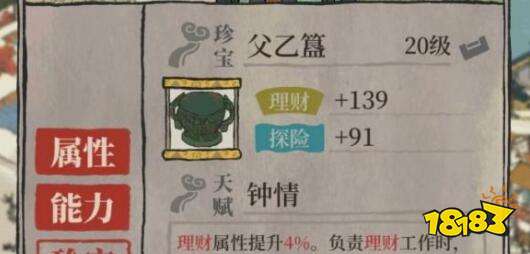 珍宝 父乙簋 20级
理财 +139
探险 +91
属性
能力
天赋 钟情
理财属性提升4%。负责理财工作时,
18183